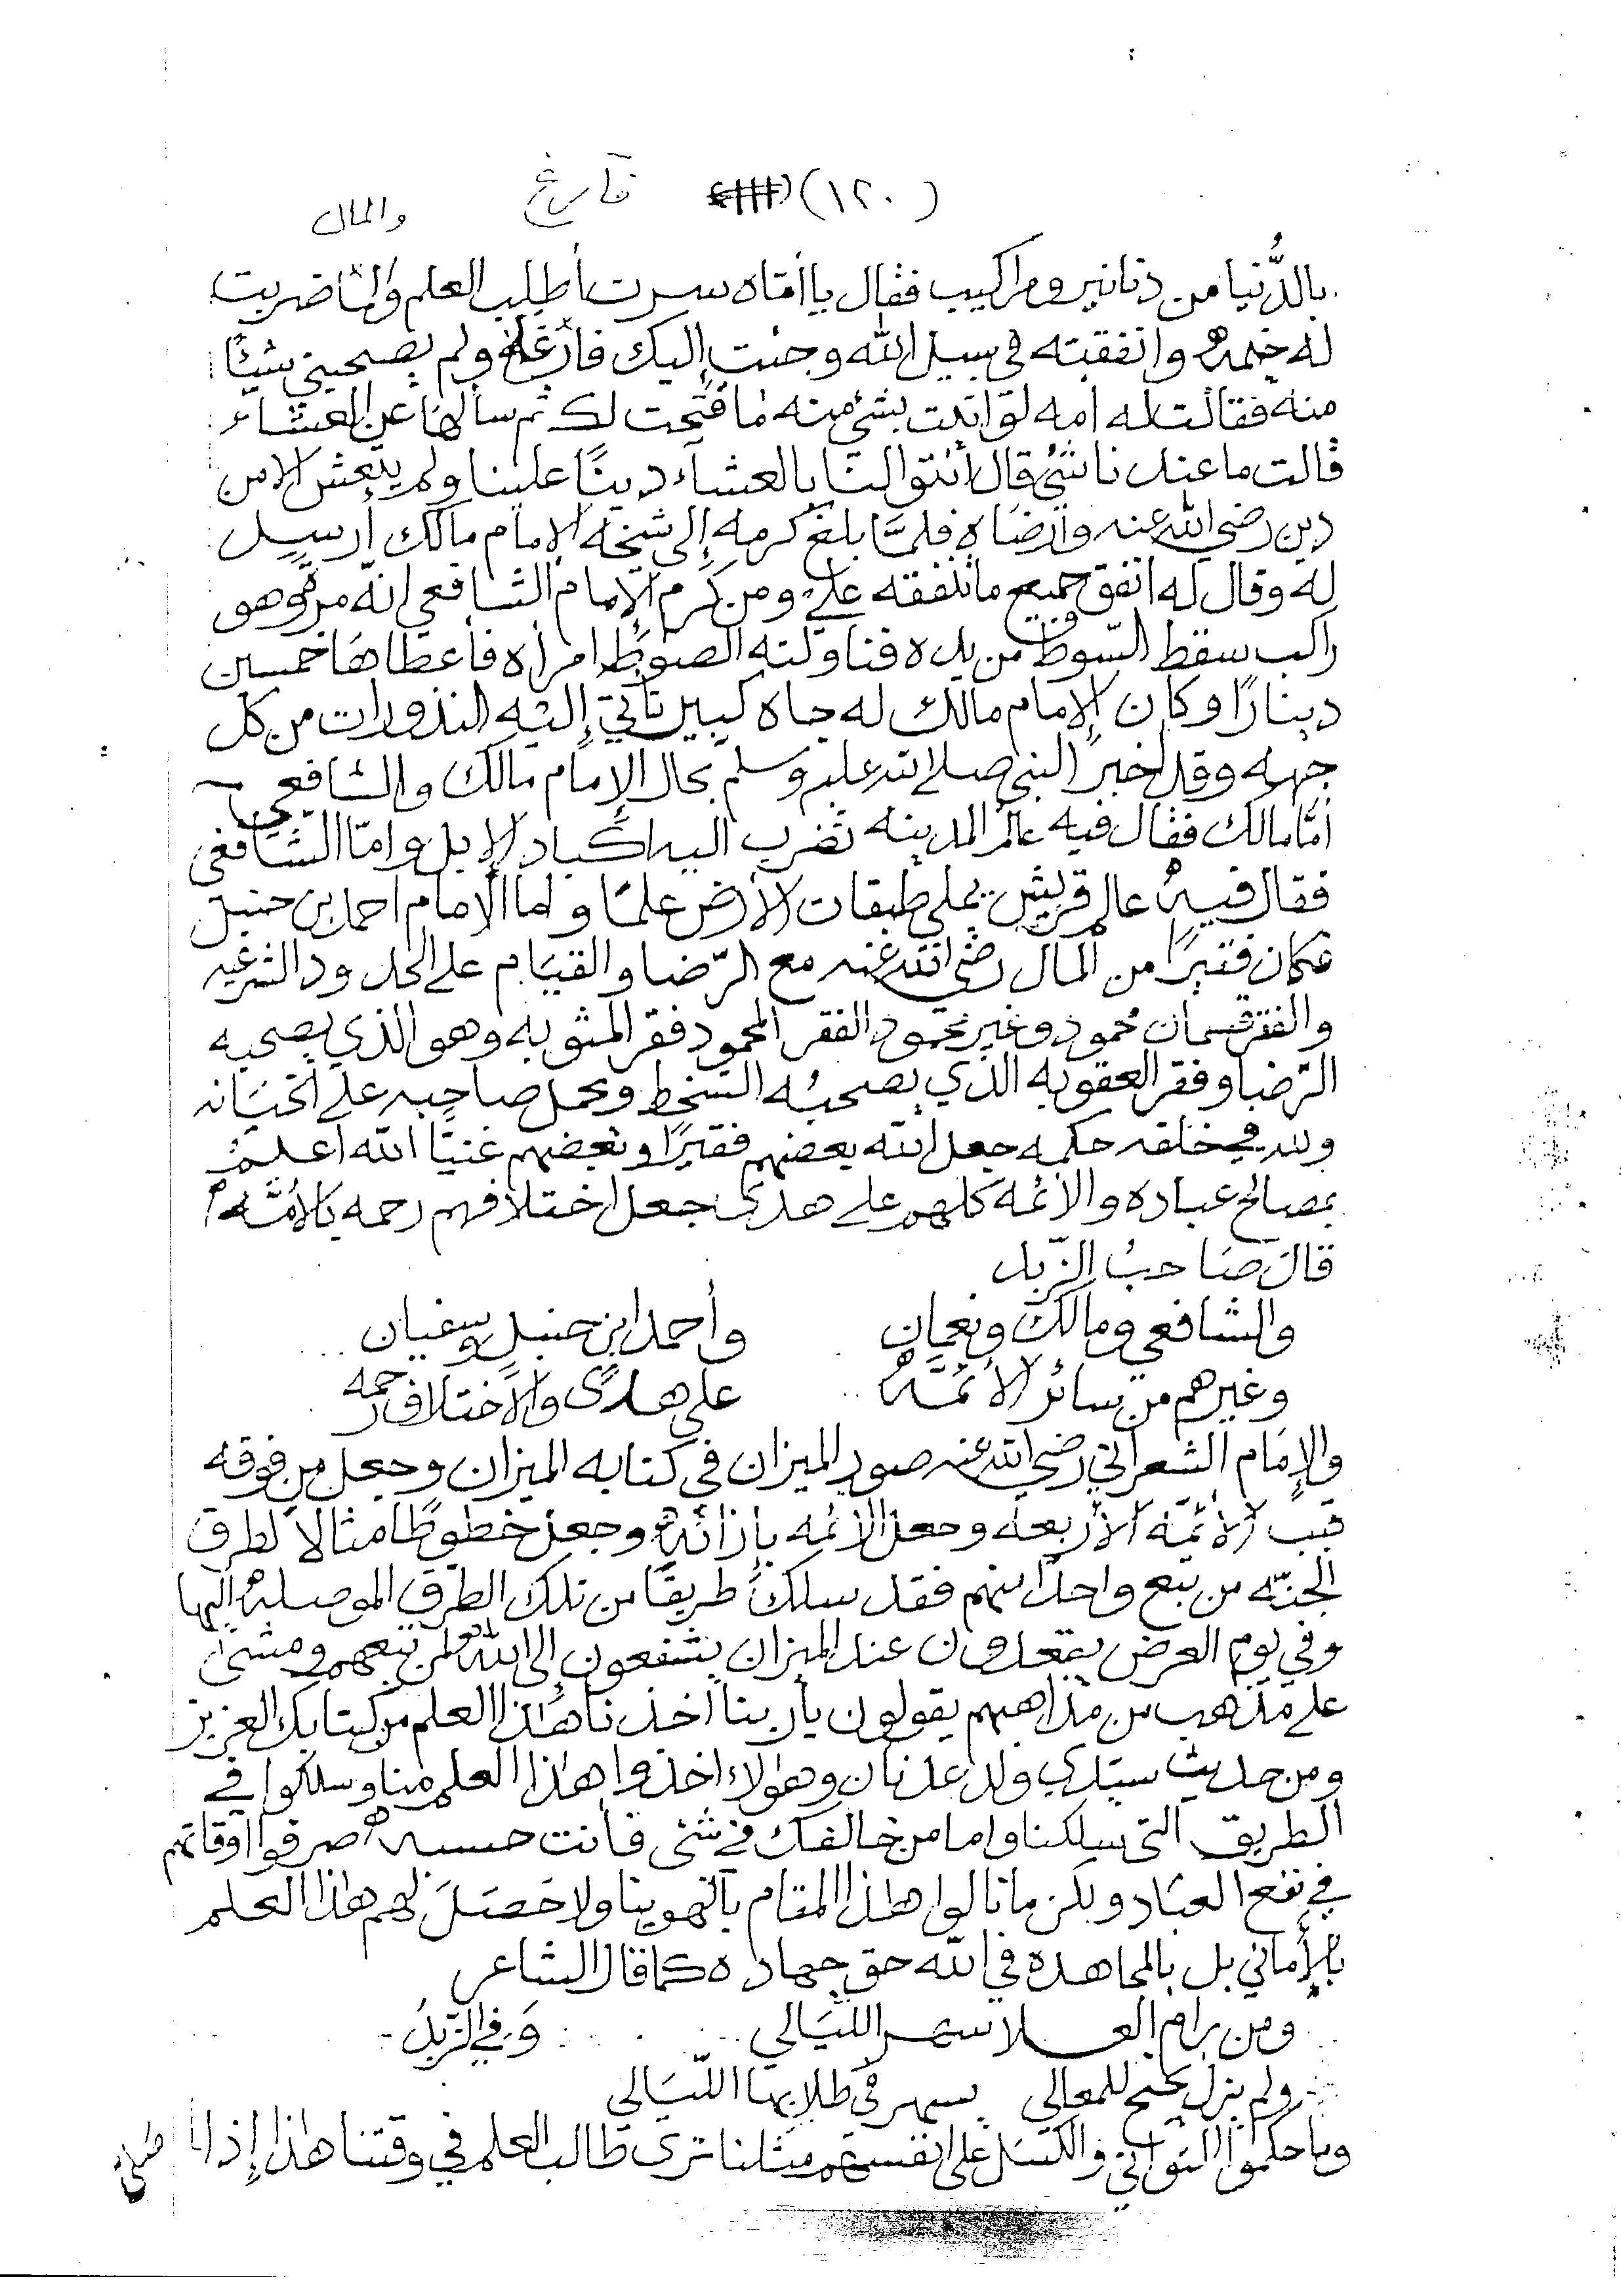 (١٢٠) فارغ
والمال
بالدُّنيا من دنانير ومراكيب فقال يا أماه سرت أطلب العلم والمال ضربت
له خيمه وانفقته في سبيل الله وجئت إليك فارغًا ولم يصحبني شيئًا
منه فقالت له امه لو اتيت بشئ منه ما فتحت لك ثم سألها عن العشاء
قالت ما عندنا شئ قال أئتوا لنا بالعشاء دينًا علينا ولم يتعش الا من
دين رضي الله عنه وأرضاه فلمّا بلغ كرمه إلى شيخه الإمام مالك أرسل
له وقال له انفق جميع ما تنفقه عليّ ومن كرم الإمام الشافعي انّه مرة وهو
راكب سقط السّوط من يده فناولته الصوط امرأه فأعطاها خمسين
دينارًا وكان الإمام مالك له جاه كبير تأتي إليه النذورات من كل
جهه وقد اخبر النبي صلى الله عليه وسلم بحال الإمام مالك والشافعي
أمّا مالك فقال فيه عالم المدينه تضرب اليه اكباد الإبل وامّا الشافعي
فقال فيه عالم قريش يملي طبقات الأرض علمًا واما الامام احمد بن حنبل
فكان فقيرًا من المال رضي الله عنه مع الرّضا والقيام على الحدود الشرعيه
والفقر قسمان محمود وغير محمود الفقر المحمود فقر المثوبه وهو الذي يصحبه
الرّضا وفقر العقوبه الذي يصحبُه السّخط ويحمل صاحبه على الخيانه
ولله في خلقه حكمه جعل الله بعضهم فقيرًا وبعضهم غنيًّا الله اعلم
بمصالح عباده والأئمه كلهم على هدى جعل اختلافهم رحمه بالأمّه
قال صَاحبُ الزّبد
والشافعي ومالك ونعمان وأحمد ابن حنبل وسفيان
وغيرهم من سائر الأئمّه على هدىً والاختلاف رحمه
والإمَام الشعراني رضي الله عنه صور الميزان في كتابه الميزان وجعل من فوقه
قبب الأئمّه الأربعه وجعل الأئمه بإزائه وجعل خطوطًا مثالا لطرق
الجنّه من تبع واحدًا منهم فقد سلك طريقًا من تلك الطرق الموصله اليها
وفي يوم العرض يقعدون عند الميزان يشفعون إلى الله لمن تبعهم ومشى
على مذهب من مذاهبهم يقولون يا ربنا أخذنا هذا العلم من كتابك العزيز
ومن حديث سيّدي ولد عدنان وهؤلاء اخذوا هذا العلم منا وسلكوا في
الطريق التي سلكنا واما من خالفك في شئ فأنت حسبه صرفوا اوقاتهم
في نفع العباد ولكن ما نالوا هذا المقام بالهوينا ولا حَصَلَ لهم هذا العلم
بالأماني بل بالمجاهدة في الله حق جهاده كما قال الشاعر
ومن رام العلا سهر الليَالي وَفي الزّبدُ
ولم يزل يجنح للمعالي يسهر في طلابها اللّيَالي
وما حكموا التواني والكسَل على انفسهم مثلنا ترى طالب العلم في وقتنا هذا إذا